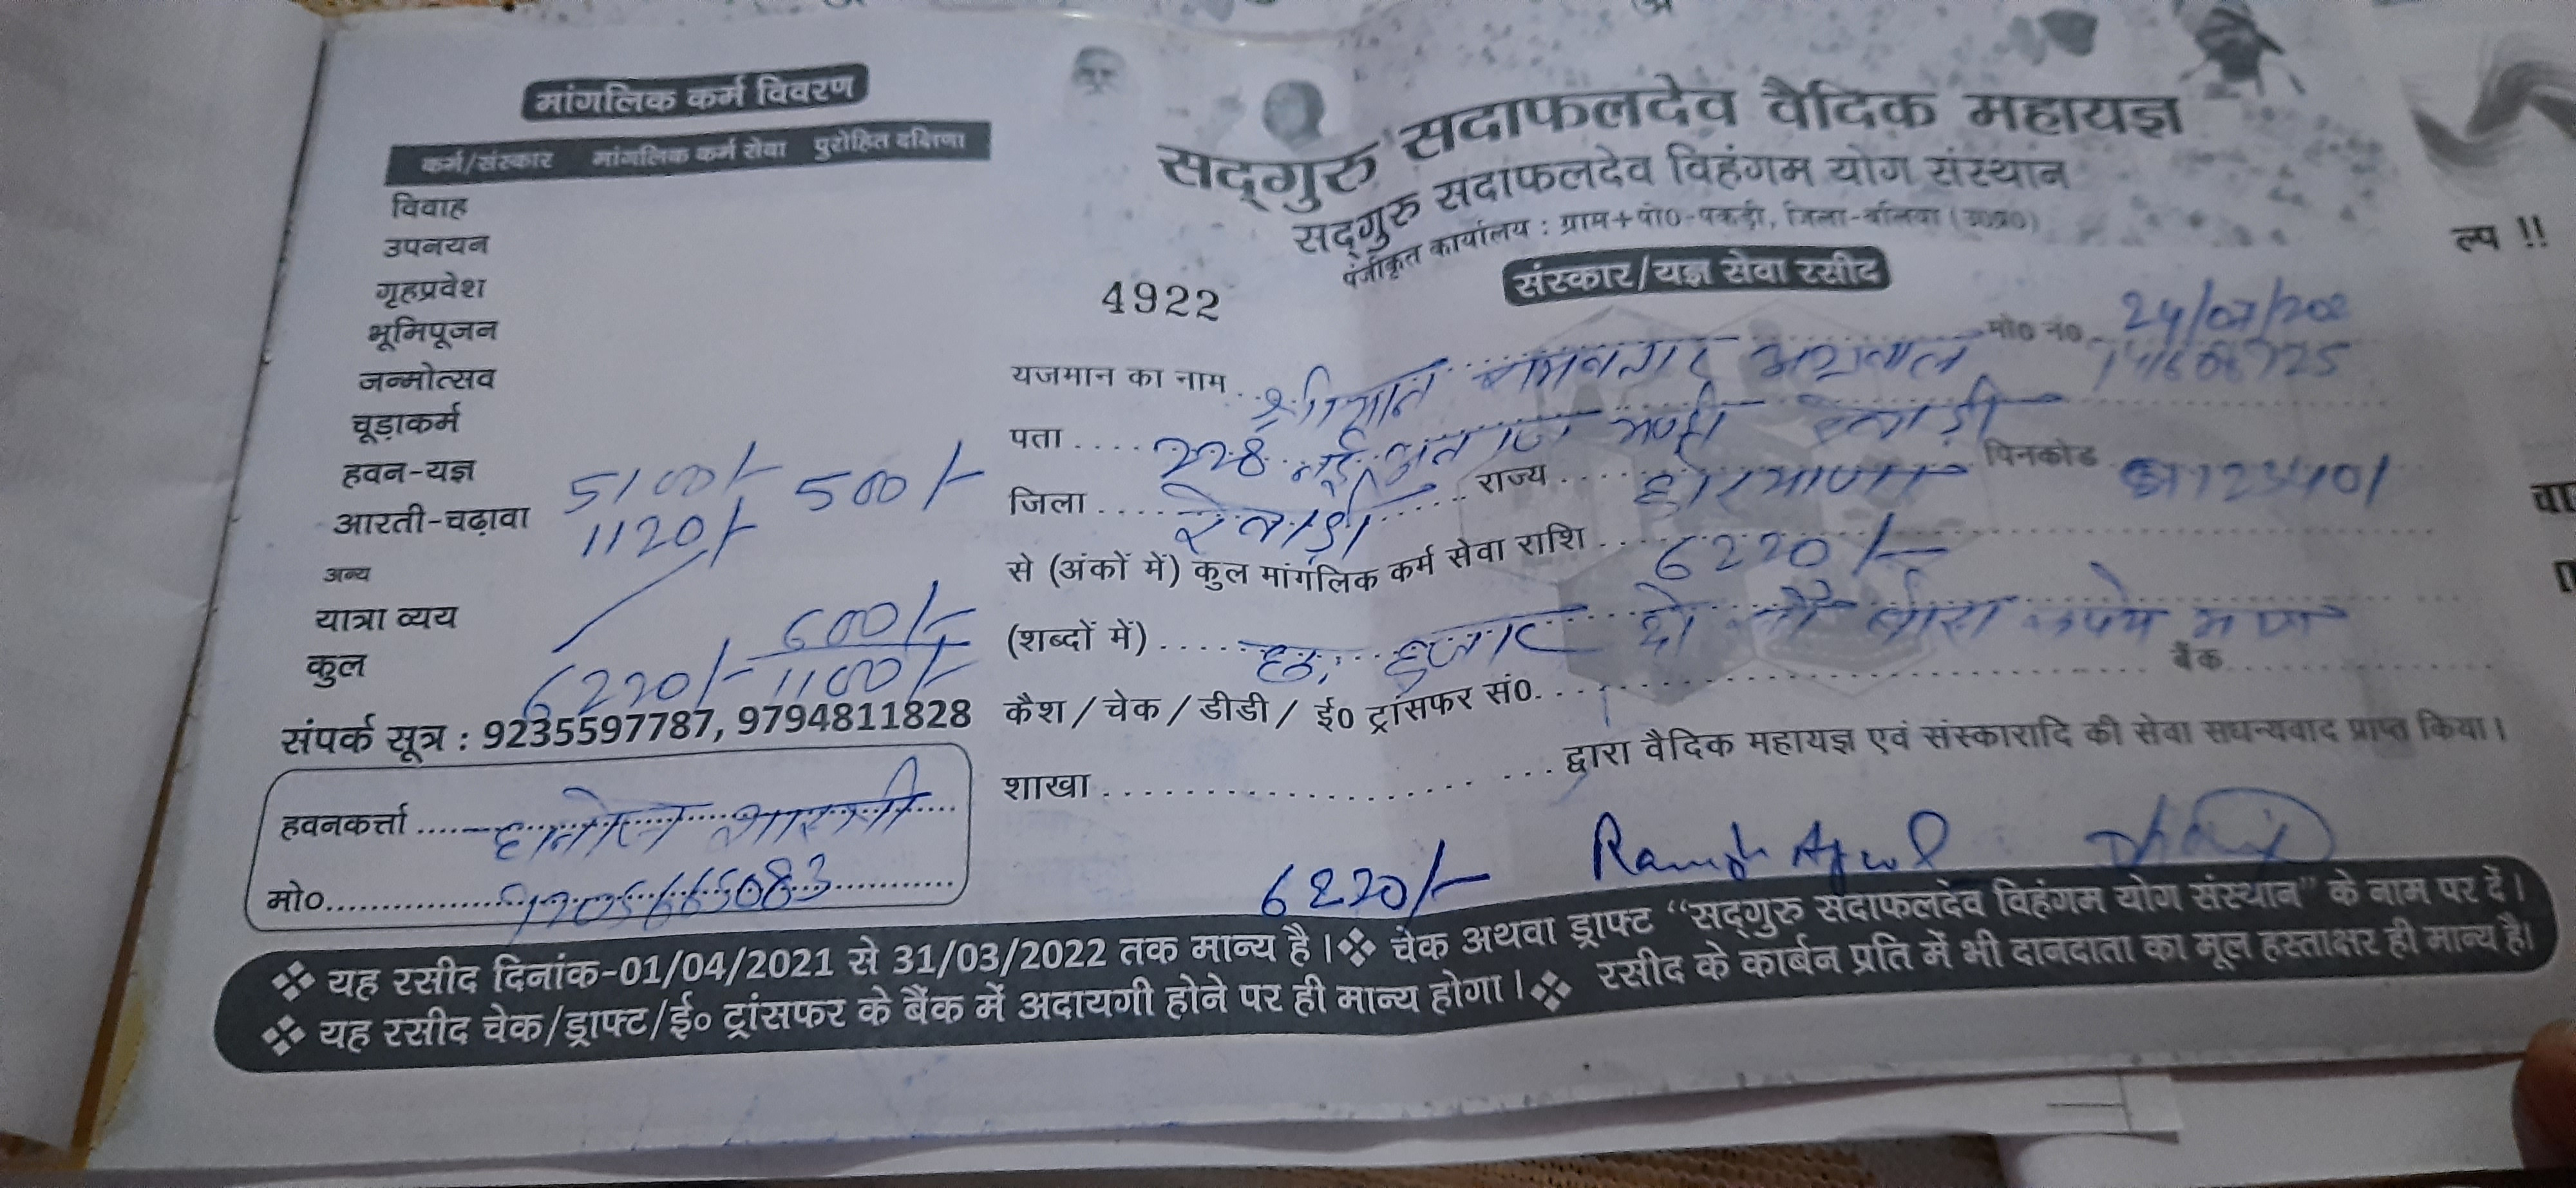 मांगलिक कर्म विवरण
कर्म/संस्कार मांगलिक कर्म सेवा पुरोहित दक्षिणा
विवाह
उपनयन
गृहप्रवेश
भूमिपूजन
जन्मोत्सव
चूड़ाकर्म
हवन-यज्ञ 5100/- 500/-
आरती-चढ़ावा 1120/-
अन्य
यात्रा व्यय 600/-
कुल 6220/- 1100/-
संपर्क सूत्र : 9235597787, 9794811828
हवनकर्त्ता
मो०
सद्गुरु सदाफलदेव वैदिक महायज्ञ
सद्गुरु सदाफलदेव विहंगम योग संस्थान
पंजीकृत कार्यालय : ग्राम+पो०-पकड़ी, जिला-बलिया (उ०प्र०)
संस्कार/यज्ञ सेवा रसीद
4922
24/07/202
यजमान का नाम श्रीमान रामवतार अग्रवाल मो० नं०
पता 228 नई अनाज मण्डी रेवाड़ी
जिला रेवाड़ी राज्य हरियाणा पिनकोड 123401
से (अंकों में) कुल मांगलिक कर्म सेवा राशि 6220/-
(शब्दों में) छः हजार दो सौ बीस रूपये मात्र
कैश / चेक / डीडी / ई० ट्रांसफर सं०. बैंक
शाखा द्वारा वैदिक महायज्ञ एवं संस्कारादि की सेवा सधन्यवाद प्राप्त किया।
6220/-
❖ यह रसीद दिनांक-01/04/2021 से 31/03/2022 तक मान्य है।❖ चेक अथवा ड्राफ्ट “सद्गुरु सदाफलदेव विहंगम योग संस्थान” के नाम पर दें।
❖ यह रसीद चेक/ड्राफ्ट/ई० ट्रांसफर के बैंक में अदायगी होने पर ही मान्य होगा।❖ रसीद के कार्बन प्रति में भी दानदाता का मूल हस्ताक्षर ही मान्य है।
ल्प !!